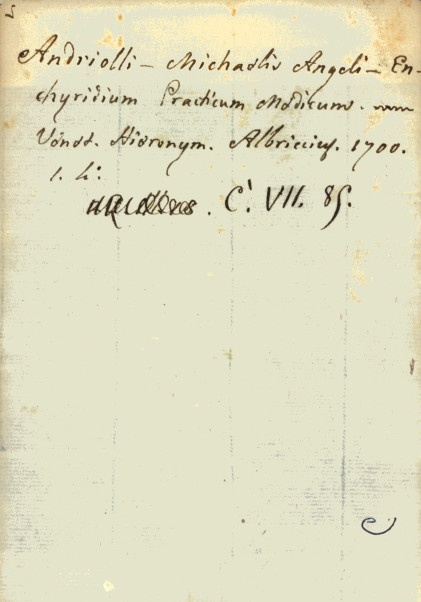 Andriolli - Michaelis Angeli - En-
chyridium Practicum Medicum.
Venet. Hieronym. Albriccius. 1700.
1. L:
C. VII. 85.